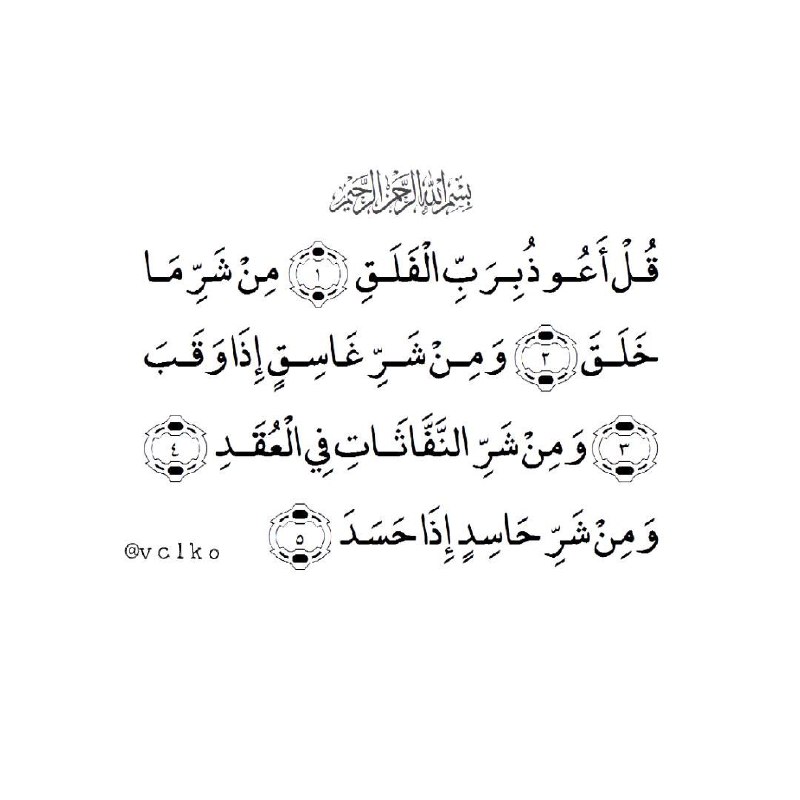 بِسْمِ اللهِ الرَّحْمٰنِ الرَّحِيْمِ
قُلْ أَعُوذُ بِرَبِّ الْفَلَقِ ١ مِنْ شَرِّ مَا
خَلَقَ ٢ وَمِنْ شَرِّ غَاسِقٍ إِذَا وَقَبَ
٣ وَمِنْ شَرِّ النَّفَّاثَاتِ فِي الْعُقَدِ ٤
وَمِنْ شَرِّ حَاسِدٍ إِذَا حَسَدَ ٥
@vclko